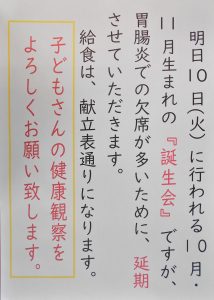 明日10日(火)に行われる10月・
11月生まれの『誕生会』ですが、
胃腸炎での欠席が多いために、延期
させていただきます。
給食は、献立表通りになります。
子どもさんの健康観察を
よろしくお願い致します。